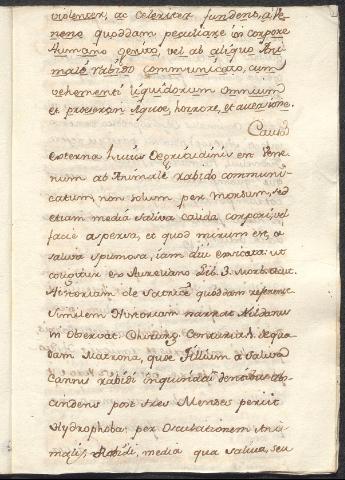 violenter, ac celeriter fundens, a Ve-
neno quodam peculiare in corpore
humano genito, vel ab aliquo Ani-
male rabido communicato, cum
vehementi liquidorum omnium
et praeserti Aquae, horrore, et aversione.
Causa
externa hujus Aegritudinis est Vene-
num ab Animale rabido communi-
catum, non solum per morsum, sed
etiam media saliva calida corpori, vel
facie aspersa, et quod mirum est, a
saliva spumosa, iam diu exsicata ut
ex Aureliano Lib. 3. Morb. acut.
Historiam de quodam referente
Similem Historiam narrat Hildanus
in Observat. Chirurg. Centuria 1. de qua-
dam Matrona, quae Pallium a Saliva
Cannis rabidi inquinatum dentibus abs-
cindens post tres Menses periit
Hydrophoba; per Osculationem Ani-
malis Rabidi, media qua saliva, seu